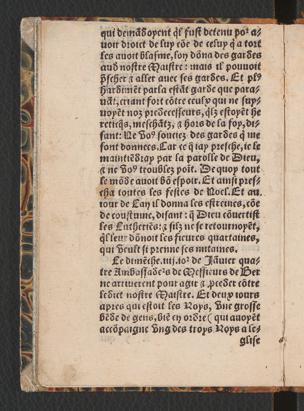 qui demādoyent q̄l fust detenu po² a-
uoir droict de luy cōe de celuy q̄ a tort
les auoit blasme, lon dōna des gardes
aud nostre Maistre: mais il pouuoit
p̄scher ⁊ aller auec ses gardes. Et pl⁹
hardimēt parla estāt garde que para-
uāt, criant fort cōtre ceulx qui ne suy-
uoyēt noz predecesseurs, q̄lz estoyēt he
retiq̄s, meschātz, ⁊ hors de la foy, di-
sant: Ne vo⁹ souciez des gardes q̄ me
sont donnees. Car ce q̄ iay presche, ie le
maintiēdray par la parolle de Dieu,
⁊ ne vo⁹ troublez poīt. De quoy tout
le mōde auoit bō espoir. Et ainsi pres-
cha toutes les festes de Noel. Et au
iour de Lan il donna les estreines, cōe
de coustume, disant: q̄ Dieu cōuertist
les Lutheriēs: ⁊ silz ne se retournoyēt,
q̄l leur dōnoit les fieures quartaines,
qui veult si prenne ses mitaines.
Le dimēche .iiij. io² de Jāuier qua-
tre Ambassadeᵉs de Messieurs de Ber
ne arriuerent pour agir ⁊ p̄ceder cōtre
ledict nostre Maistre. Et deux iours
apres qui estoit les Roys, vne grosse
bēde de gens, biē en ordre (qui auoyēt
accōpaigne vng des troys Roys a le-
glise